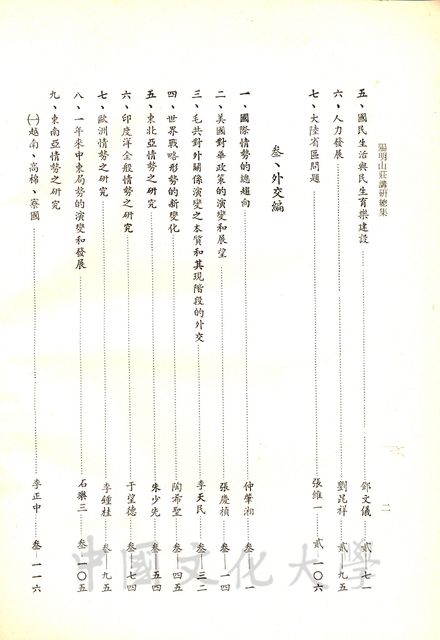 陽明山莊講研總集
二
五、國民生活與民生育樂建設……鄧文儀 貳—七一
六、人力發展……劉崑祥 貳—九五
七、大陸省區問題……張維一 貳—一〇六
叁、外交編
一、國際情勢的總趨向……仲肇湘 叁—一
二、美國對華政策的演變和展望……張慶楨 叁—一四
三、毛共對外關係演變之本質和其現階段的外交……李天民 叁—三二
四、世界戰略形勢的新變化……陶希聖 叁—四五
五、東北亞情勢之研究……朱少先 叁—五四
六、印度洋全般情勢之研究……于望德 叁—七四
七、歐洲情勢之研究……李鍾桂 叁—九五
八、一年來中東局勢的演變和發展……石樂三 叁—一〇五
九、東南亞情勢之研究
㈠越南、高棉、寮國……李正中 叁—一一六
中國文化大學